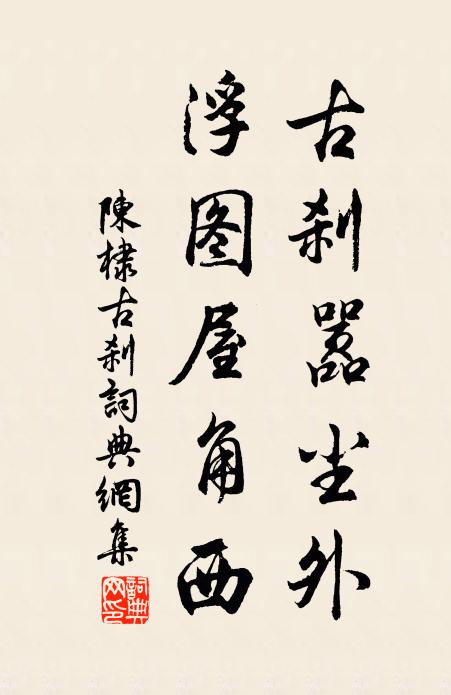 古刹嚣尘外
浮图屋角西
陳棣古刹詞典網集
詞典网印